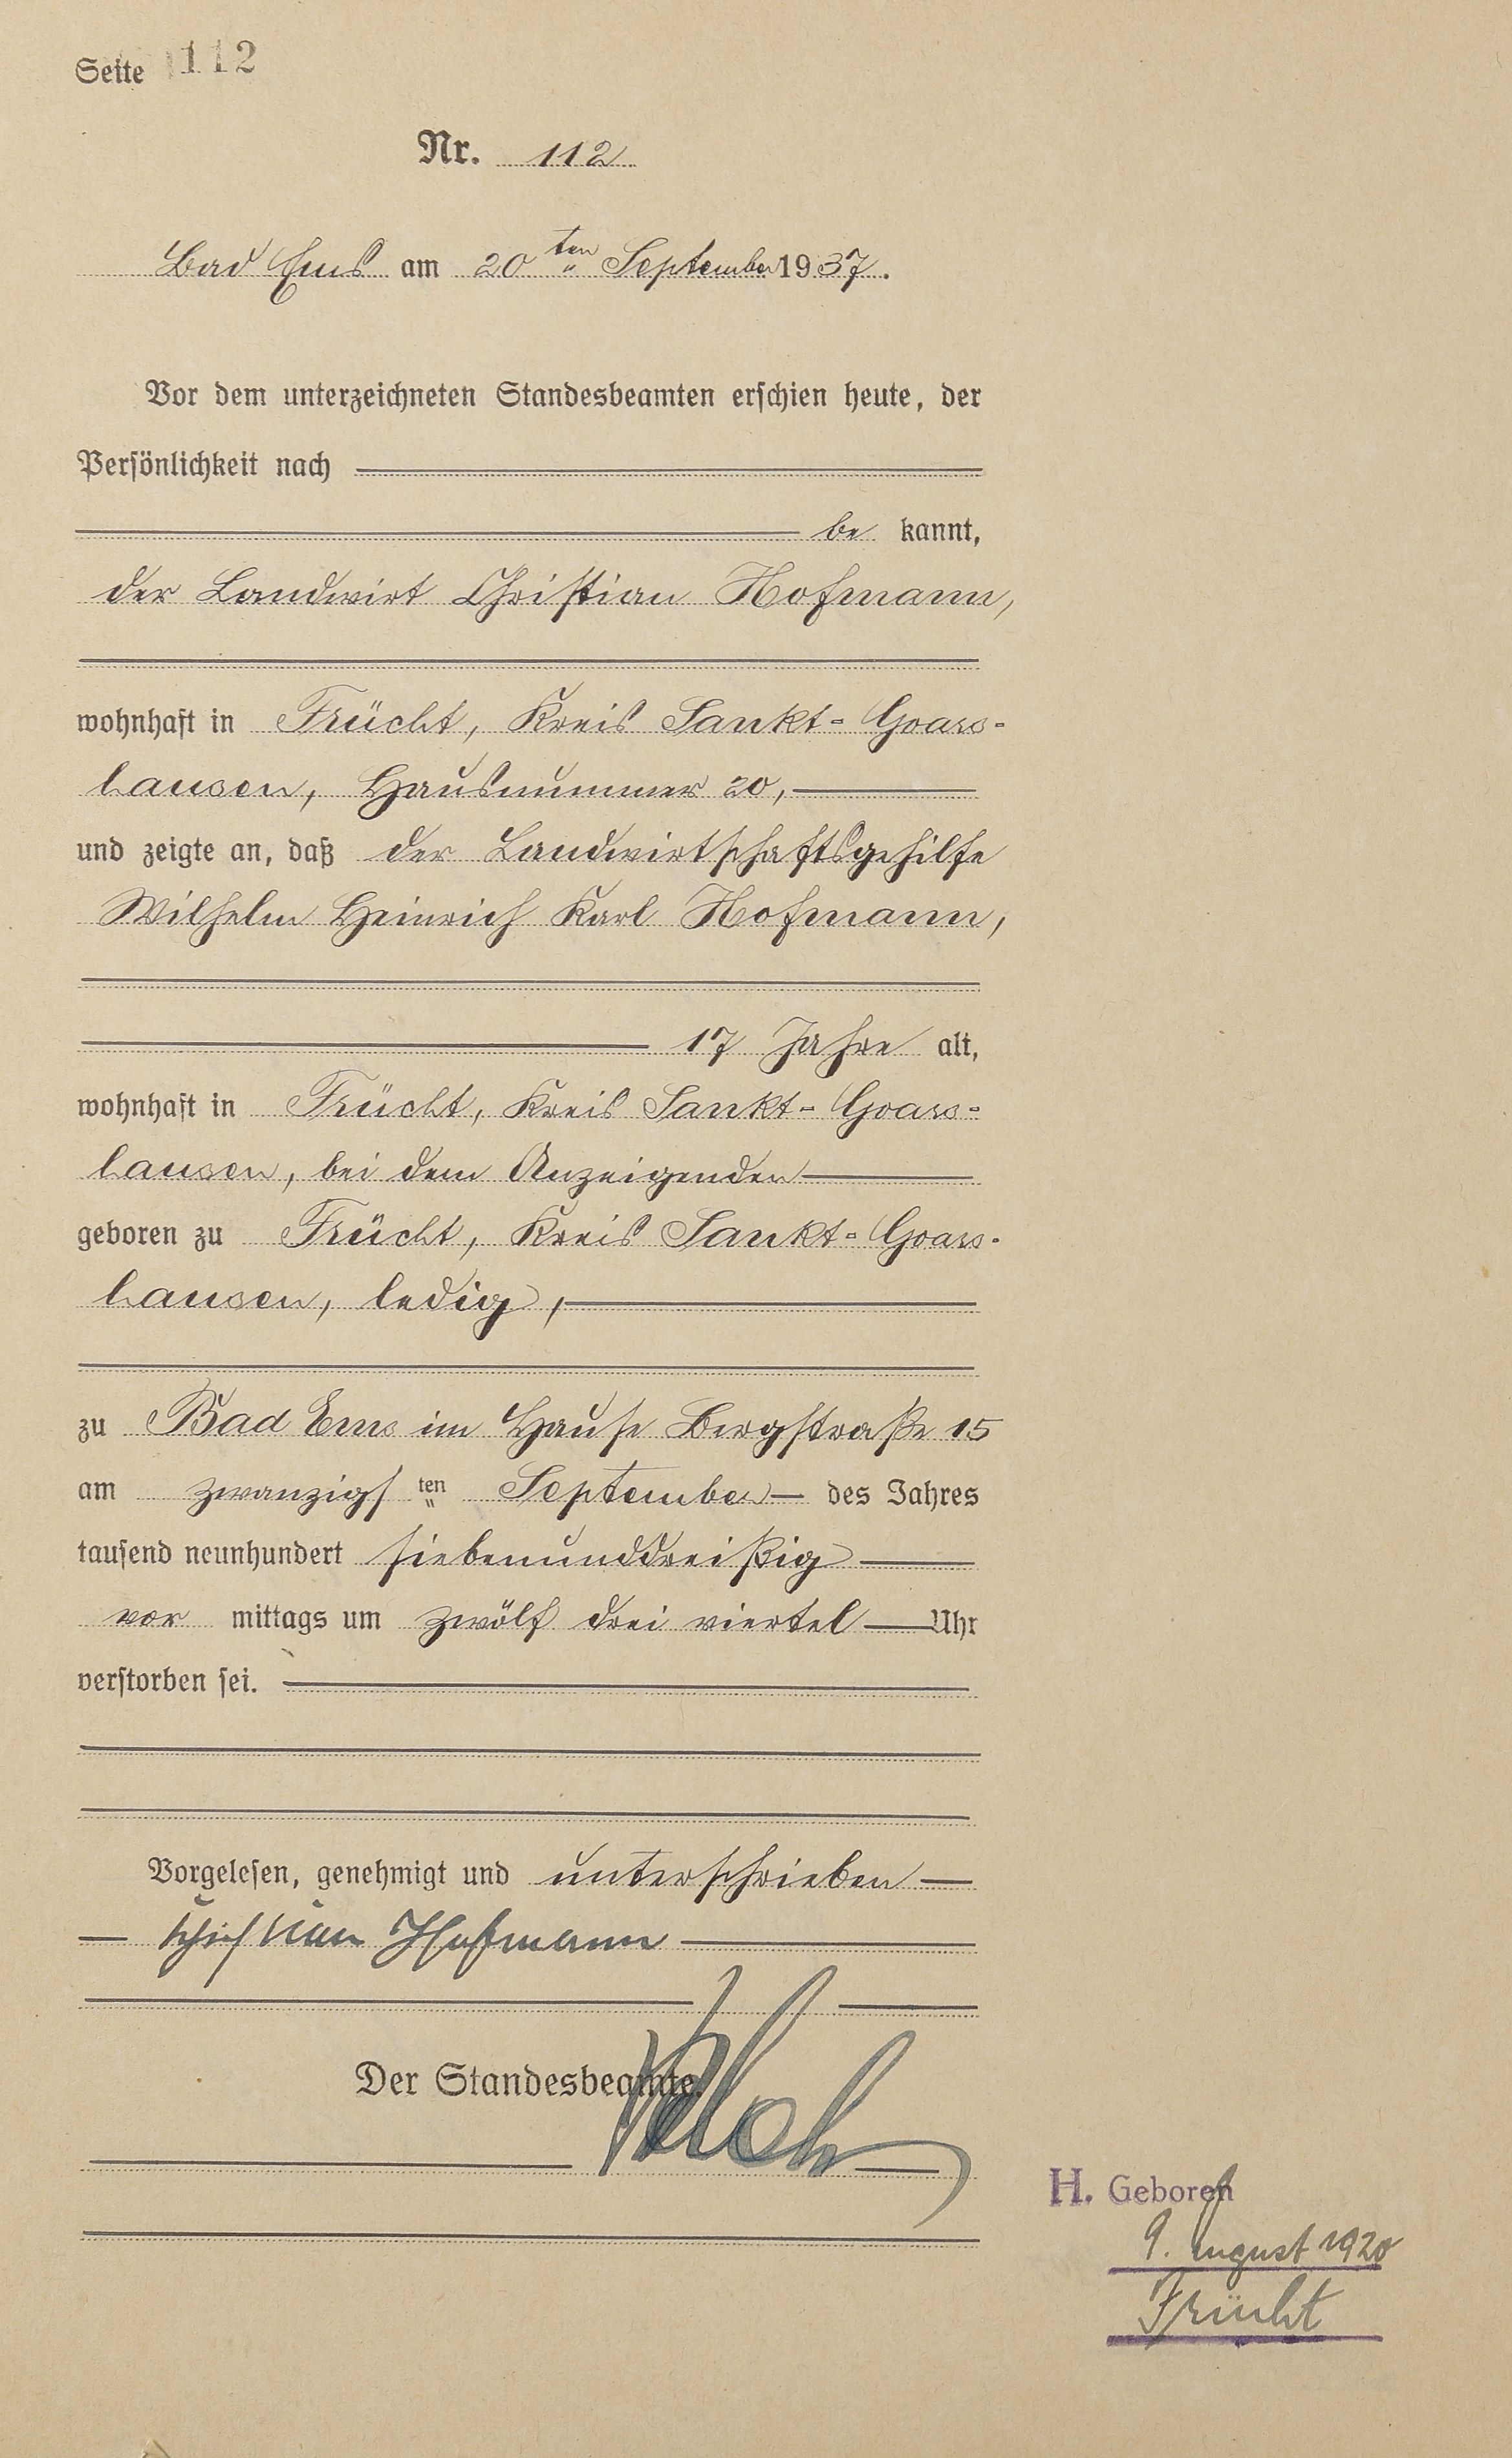 Seite 112
Nr. 112
Bad Ems am 20ten September 1937.
Vor dem unterzeichneten Standesbeamten erschien heute, der
Persönlichkeit nach
be kannt,
der Landwirt Christian Hofmann,
wohnhaft in Frücht, Kreis Sankt-Goars-
hausen, Hausnummer 20,
und zeigte an, daß der Landwirtschaftsgehilfe
Wilhelm Heinrich Karl Hofmann,
17 Jahre alt,
wohnhaft in Frücht, Kreis Sankt-Goars-
hausen, bei dem Anzeigenden
geboren zu Frücht, Kreis Sankt-Goars-
hausen, ledig,
zu Bad Ems im Hause Bergstraße 15
am zwanzigsten September des Jahres
tausend neunhundert siebenunddreißig
vor mittags um zwölf drei viertel Uhr
verstorben sei.
Vorgelesen, genehmigt und unterschrieben
Christian Hofmann
Der Standesbeamte.
H. Geboren
9. August 1920
Frücht